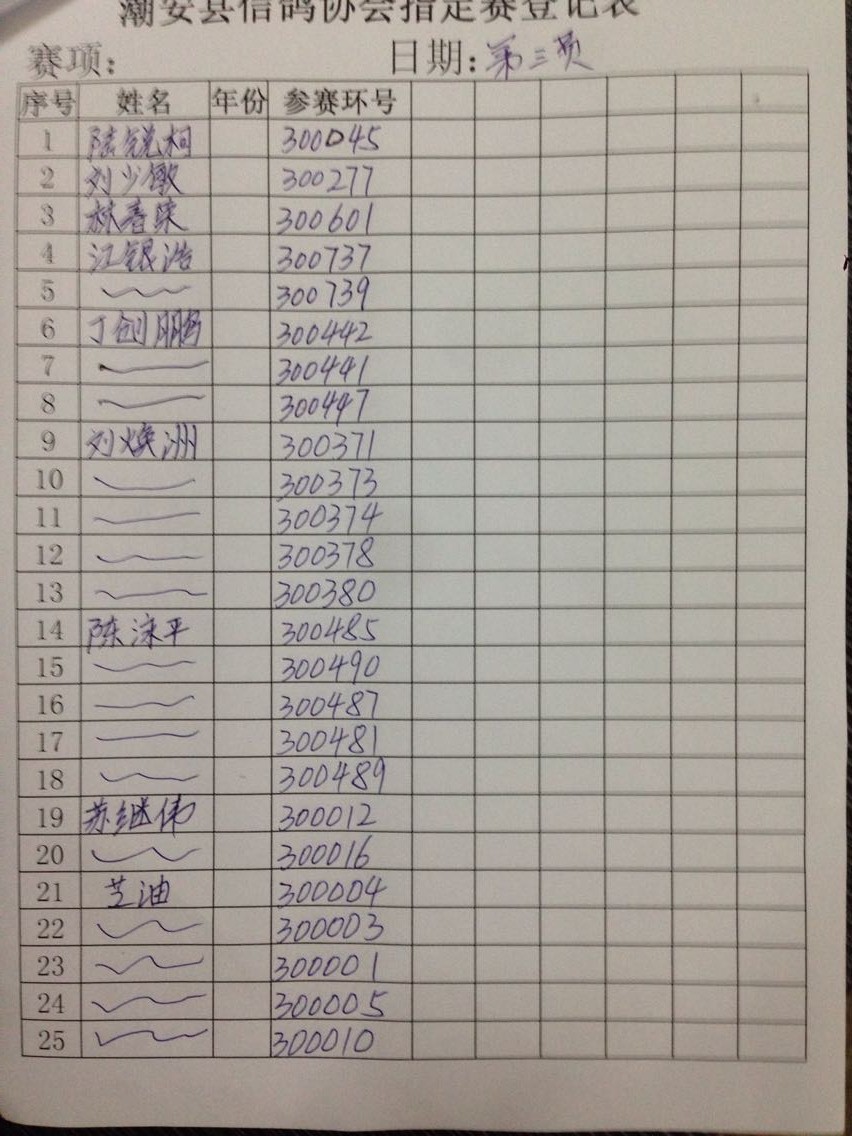 潮安县信鸽协会指定赛登记表
赛项: 日期: 第三页
序号 姓名 年份 参赛环号
1 陆锐柯 300045
2 刘少敏 300277
3 林春 300601
4 江银浩 300737
5 300739
6 丁创鹏 300442
7 300441
8 300447
9 刘焕洲 300371
10 300373
11 300374
12 300378
13 300380
14 陈泳平 300485
15 300490
16 300487
17 300481
18 300489
19 苏继伟 300012
20 300016
21 芝油 300004
22 300003
23 300001
24 300005
25 300010